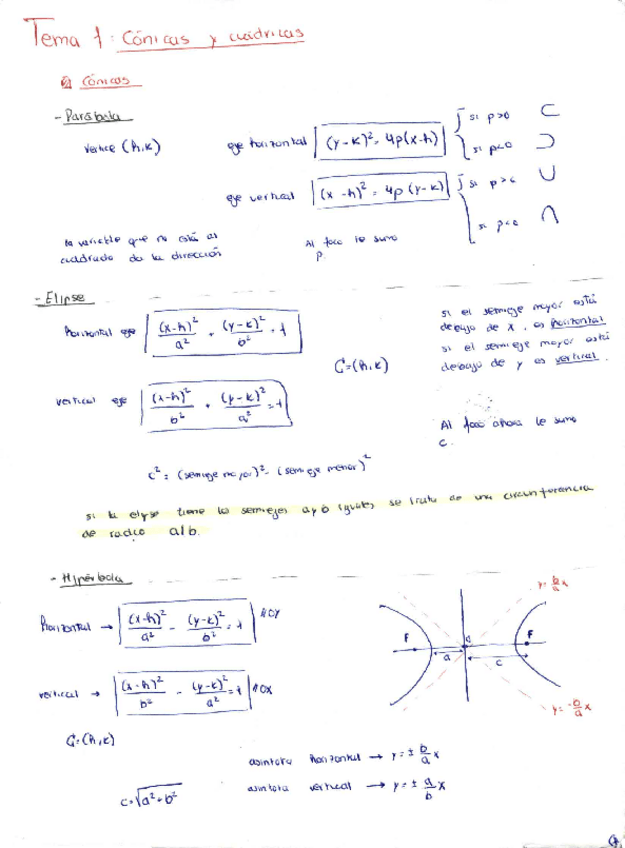 Tema 1: Cónicas y cuádricas
Cónicas
- Parábola
vertice (h,k)
eje horizontal (y-k)² = 4p(x-h)
si p>0
si p<0
eje vertical (x-h)² = 4p(y-k)
si p>0
si p<0
la variable que no está al
cuadrado da la dirección
Al foco le sumo
p.
- Elipse
horizontal eje (x-h)²/a² + (y-k)²/b² = 1
C=(h,k)
vertical eje (x-h)²/b² + (y-k)²/a² = 1
si el semieje mayor está
debajo de x, es horizontal
si el semieje mayor está
debajo de y es vertical.
Al foco ahora le sumo
c.
c² = (semieje mayor)² - (semieje menor)²
si la elipse tiene los semiejes a y b iguales se trata de una circunferencia
de radio a/b.
- Hipérbola
horizontal → (x-h)²/a² - (y-k)²/b² = 1
vertical → (x-h)²/b² - (y-k)²/a² = 1
C=(h,k)
c=√a²+b²
y=b/a x
F
a
c
F
y=-b/a x
asintota horizontal → y=± b/a x
asintota vertical → y=± a/b x